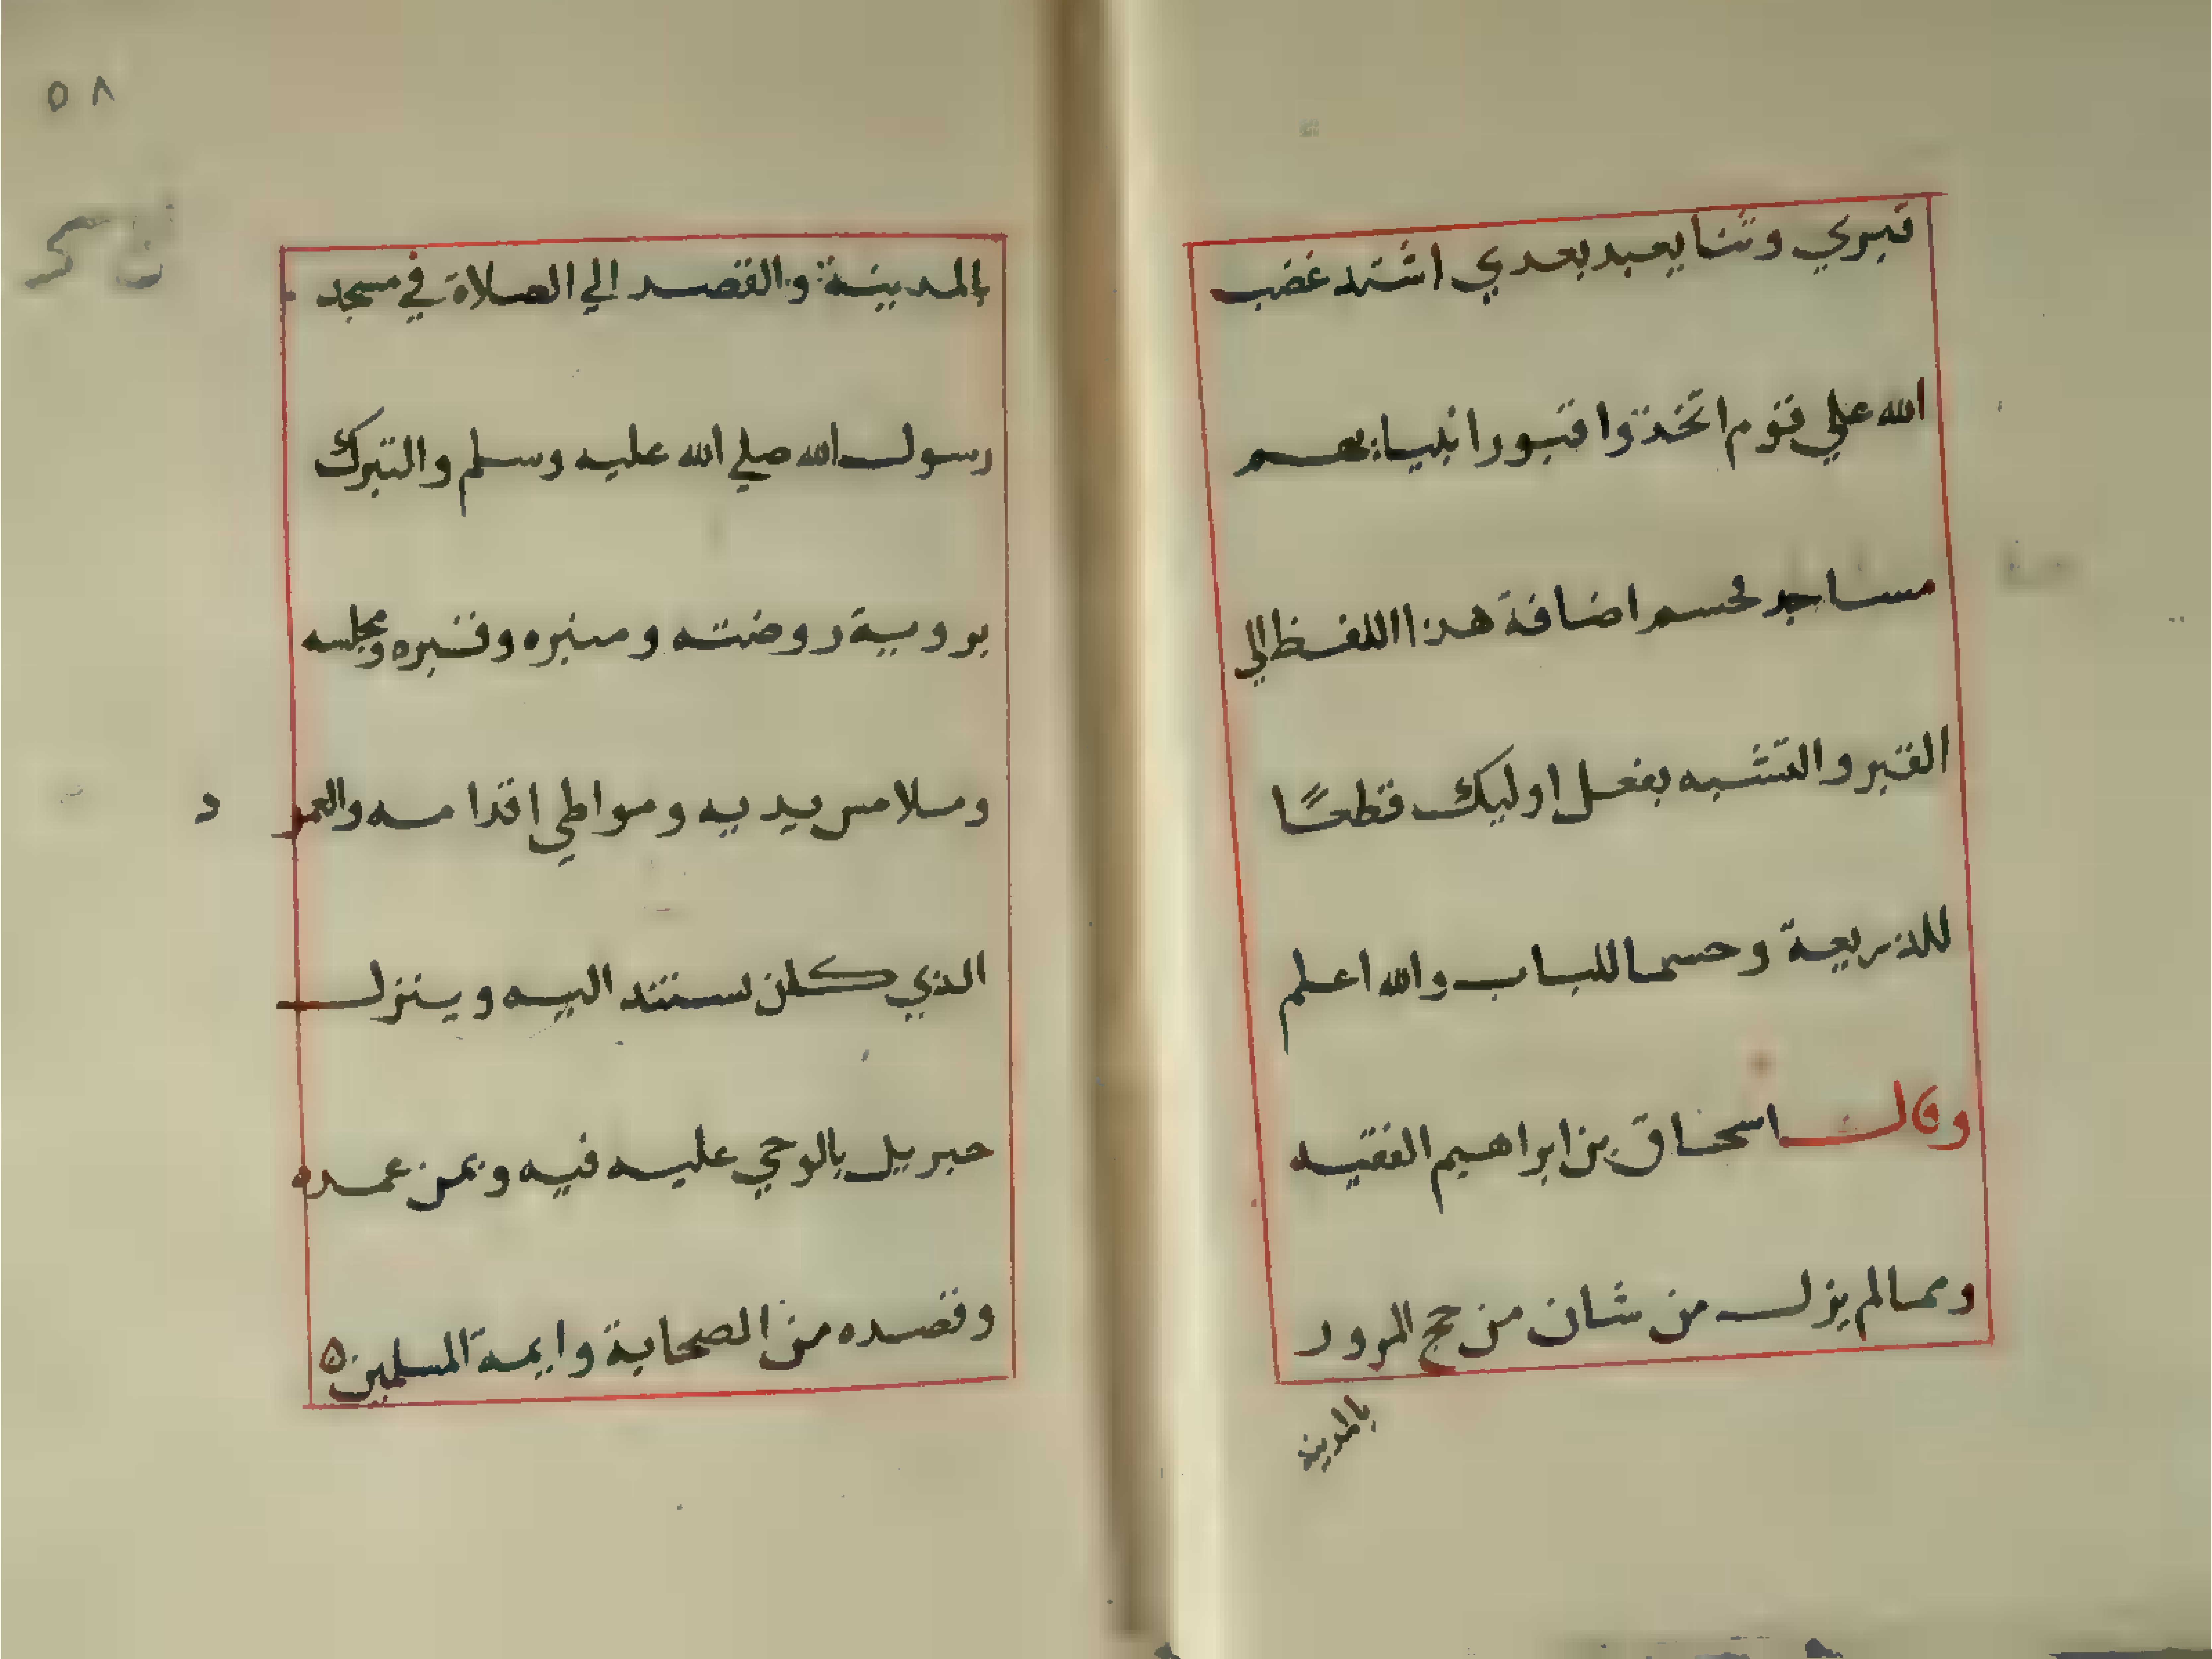 قبري وثنا يعبد بعدي اشتد غضب
الله علي قوم اتخذوا قبور انبيايهم
مساجد لحسم اضافة هذا اللفظ الي
القبر والتشبه بفعل اوليك قطعًا
للذريعة وحسما للباب والله اعلم
وقال اسحاق بن ابراهيم الفقيه
ومما لم يزل من شان من حج المرور
بالمدينة
٥٨
بالمدينة والقصد الي الصلاة في مسجد
رسول الله صلي الله عليه وسلم والتبرك
بروية روضته ومنبره وقبره ومجلسه
وملامس يديه ومواطي اقدامه والعمود
الذي كان يستند اليه وينزل
جبريل بالوحي عليه فيه وبمن عمره
وقصده من الصحابة وايمة المسلمين